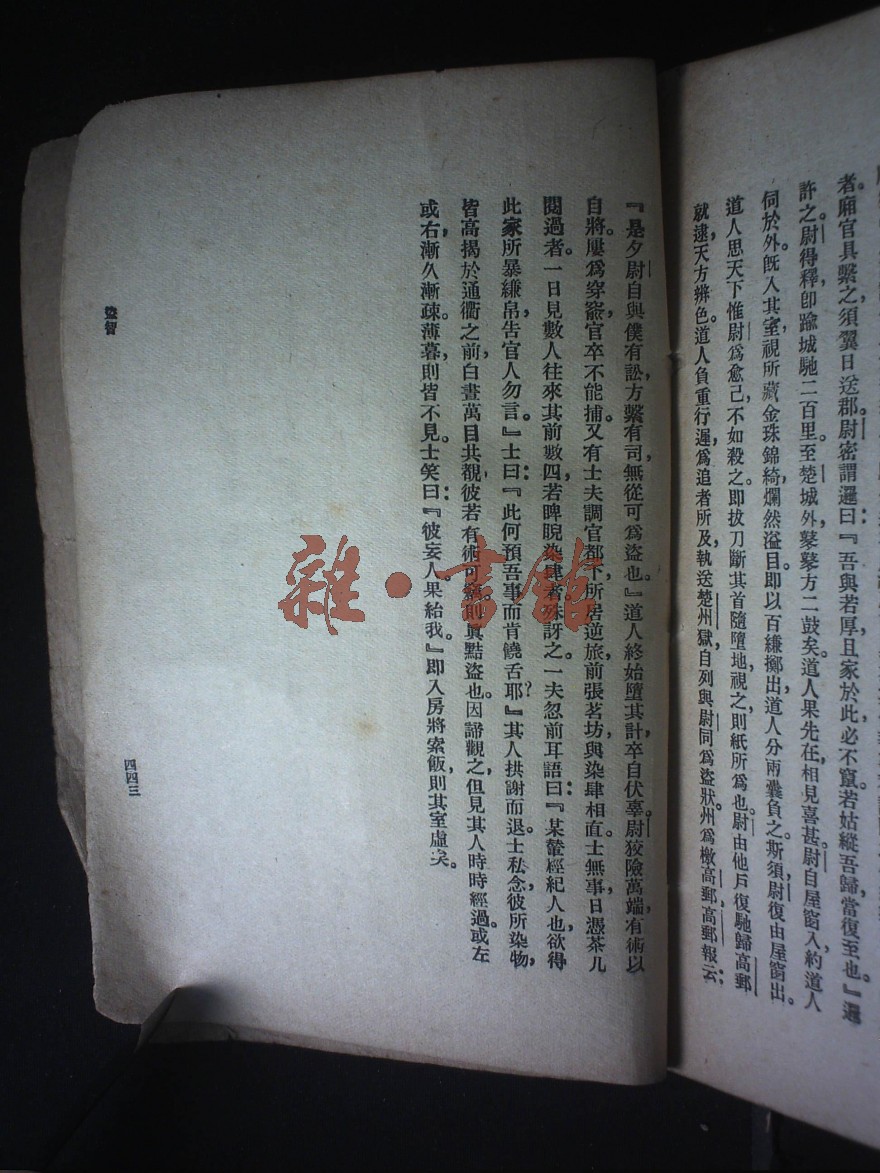 者。廂官具繫之，須翼日送郡。尉密謂邏曰：『吾與若厚，且家於此，必不竄，若姑縱吾歸，當復至也。』邏
許之。尉得釋，卽踰城馳二百里，至楚城外，鼕鼕方二鼓矣。道人果先在，相見喜甚。尉自屋窗入，約道人
伺於外。旣入其室，視所藏金珠錦綺，爛然溢目，卽以百縑擲出，道人分兩囊負之。斯須，尉復由屋窗出。
道人思天下惟尉爲愈己，不如殺之。卽拔刀斷其首，隨墮地，視之則紙所爲也。尉由他戶復馳歸高郵
就逮，天方辨色。道人負重行遲，爲追者所及，執送楚州獄，自列與尉同爲盜狀。州爲檄高郵，高郵報云：
『是夕尉自與僕有訟，方繫有司，無從可爲盜也。』道人終始墮其計，卒自伏辜。尉狡險萬端，有術以
自將。屢爲穿窬，官卒不能捕。又有士夫調官都下，所居逆旅，前張茗坊，與染肆相直。士無事，日憑茶几
閱過者。一日見數人往來其前數四，若睥睨染肆者，殊訝之。一夫忽前耳語曰：『某輩經紀人也，欲得
此家所暴縑帛，告官人勿言。』士曰：『此何預吾事，而肯饒舌耶？』其人拱謝而退。士私念，彼所染物，
皆高揭於通衢之前，白晝萬目共覩，彼若有術可竊，則眞黠盜也。因諦觀之，但見其人時時經過，或左
或右，漸久漸疎。薄暮，則皆不見。士笑曰：『彼妄人，果紿我。』卽入房將索飯，則其室虛矣。
盜智
四四三
雜·書館